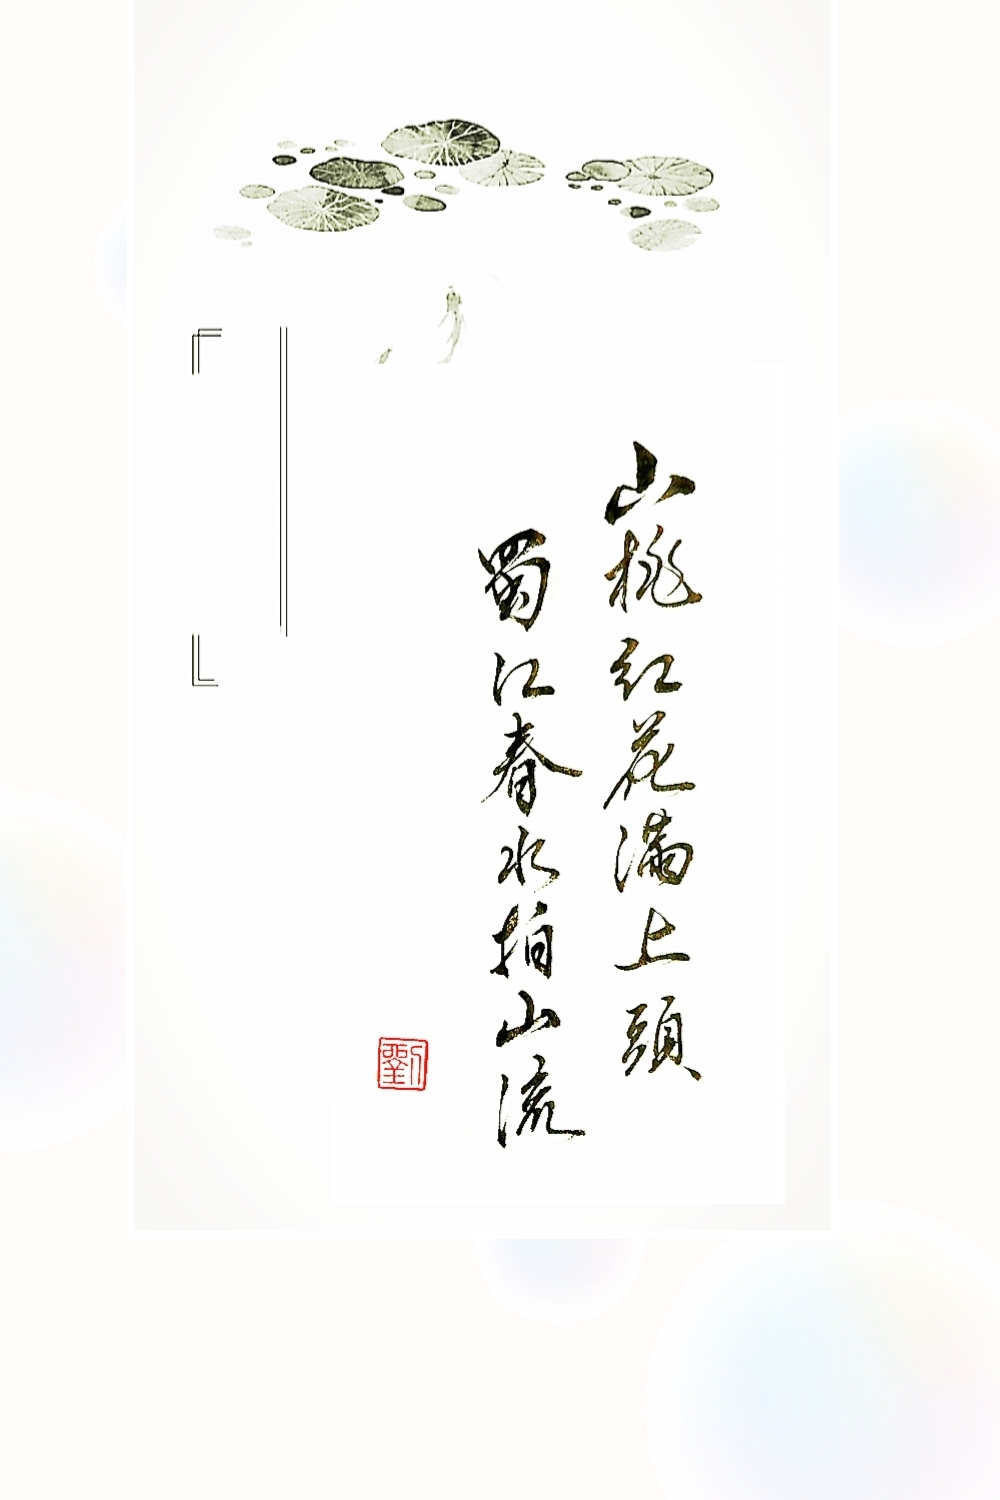 山桃紅花滿上頭
蜀江春水拍山流
劉